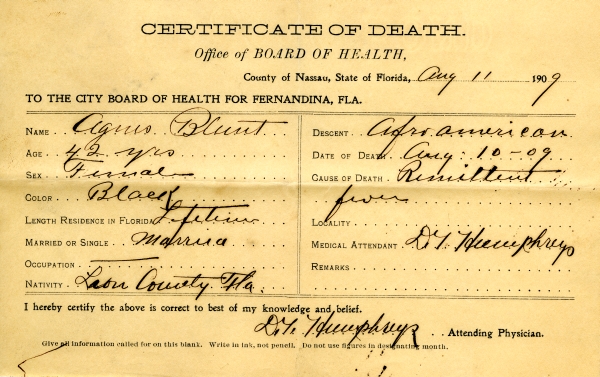 CERTIFICATE OF DEATH.
Office of BOARD OF HEALTH,
County of Nassau, State of Florida, Aug 11 1909
TO THE CITY BOARD OF HEALTH FOR FERNANDINA, FLA.
NAME Agnes Blunt
AGE 42 yrs
SEX Female
COLOR Black
LENGTH RESIDENCE IN FLORIDA Lifetime
MARRIED OR SINGLE Married
OCCUPATION
NATIVITY Leon County Fla.
DESCENT Afroamerican
DATE OF DEATH Aug. 10-09
CAUSE OF DEATH Remittent
fever
LOCALITY
MEDICAL ATTENDANT Humphreys
REMARKS
I hereby certify the above is correct to best of my knowledge and belief.
Humphreys Attending Physician.
Give all information called for on this blank. Write in ink, not pencil. Do not use figures in designating month.